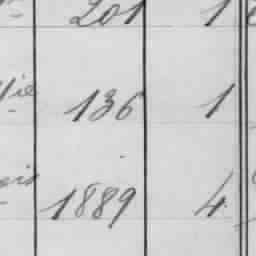 201 1
136 1
1889 4